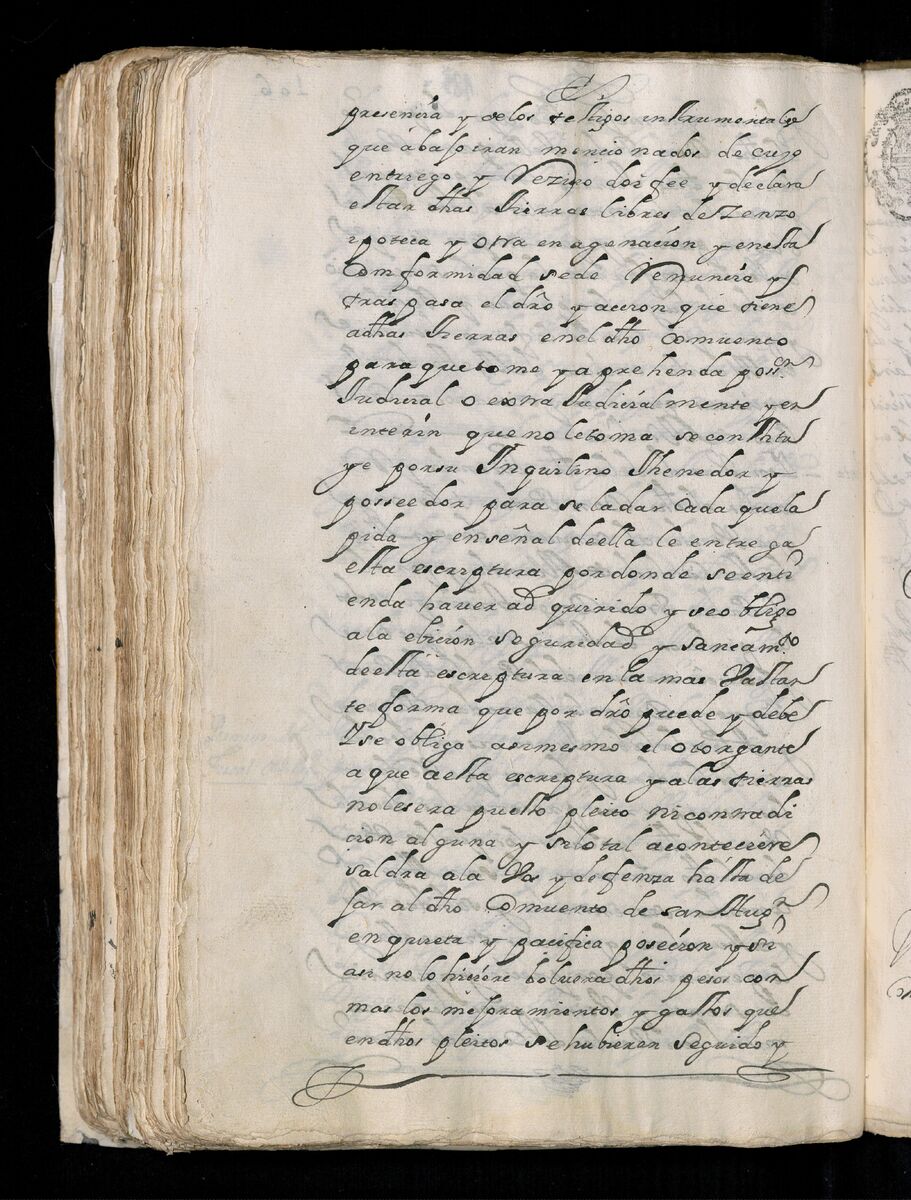 presencia y de los testigos instrumentales
que abaso iran mencionados de cuyo
entriego y Rezivo doi fee y declara
estar dhas tierras libres de Zenzo
ipoteca y otra enagenacion y en esta
Comformidad sede Renuncia y
traspasa el dro y accion que tiene
a dhas tierras en el dho Combento
para que tome y aprehenda poss.on
Judicial o extra Judicialmente y en
interin que no la toma se constitu
ye por su Inquilino thenedor y
posseedor para se la dar cada que la
pida y en señal de ella le entrega
esta escriptura por donde se enti
enda haver ad quirido y se obligo
a la ebicion seguridad y saneam.to
de esta escriptura en la mas bastan
te forma que por dro puede y debe
Y se obliga asi mesmo el otorgante
a que a esta escriptura y a las tierras
no les sera puesto pleito ni contradi
cion alguna y si lo tal aconteciere
saldra a la Vos y defenza hasta de
sar al dho Combento de san Aug.n
en quieta y pacifica posecion y si
asi no lo hiciere bolvera dhos pesos con
mas los mejoramientos y gastos que
en dhos pleitos se hubieren seguido y